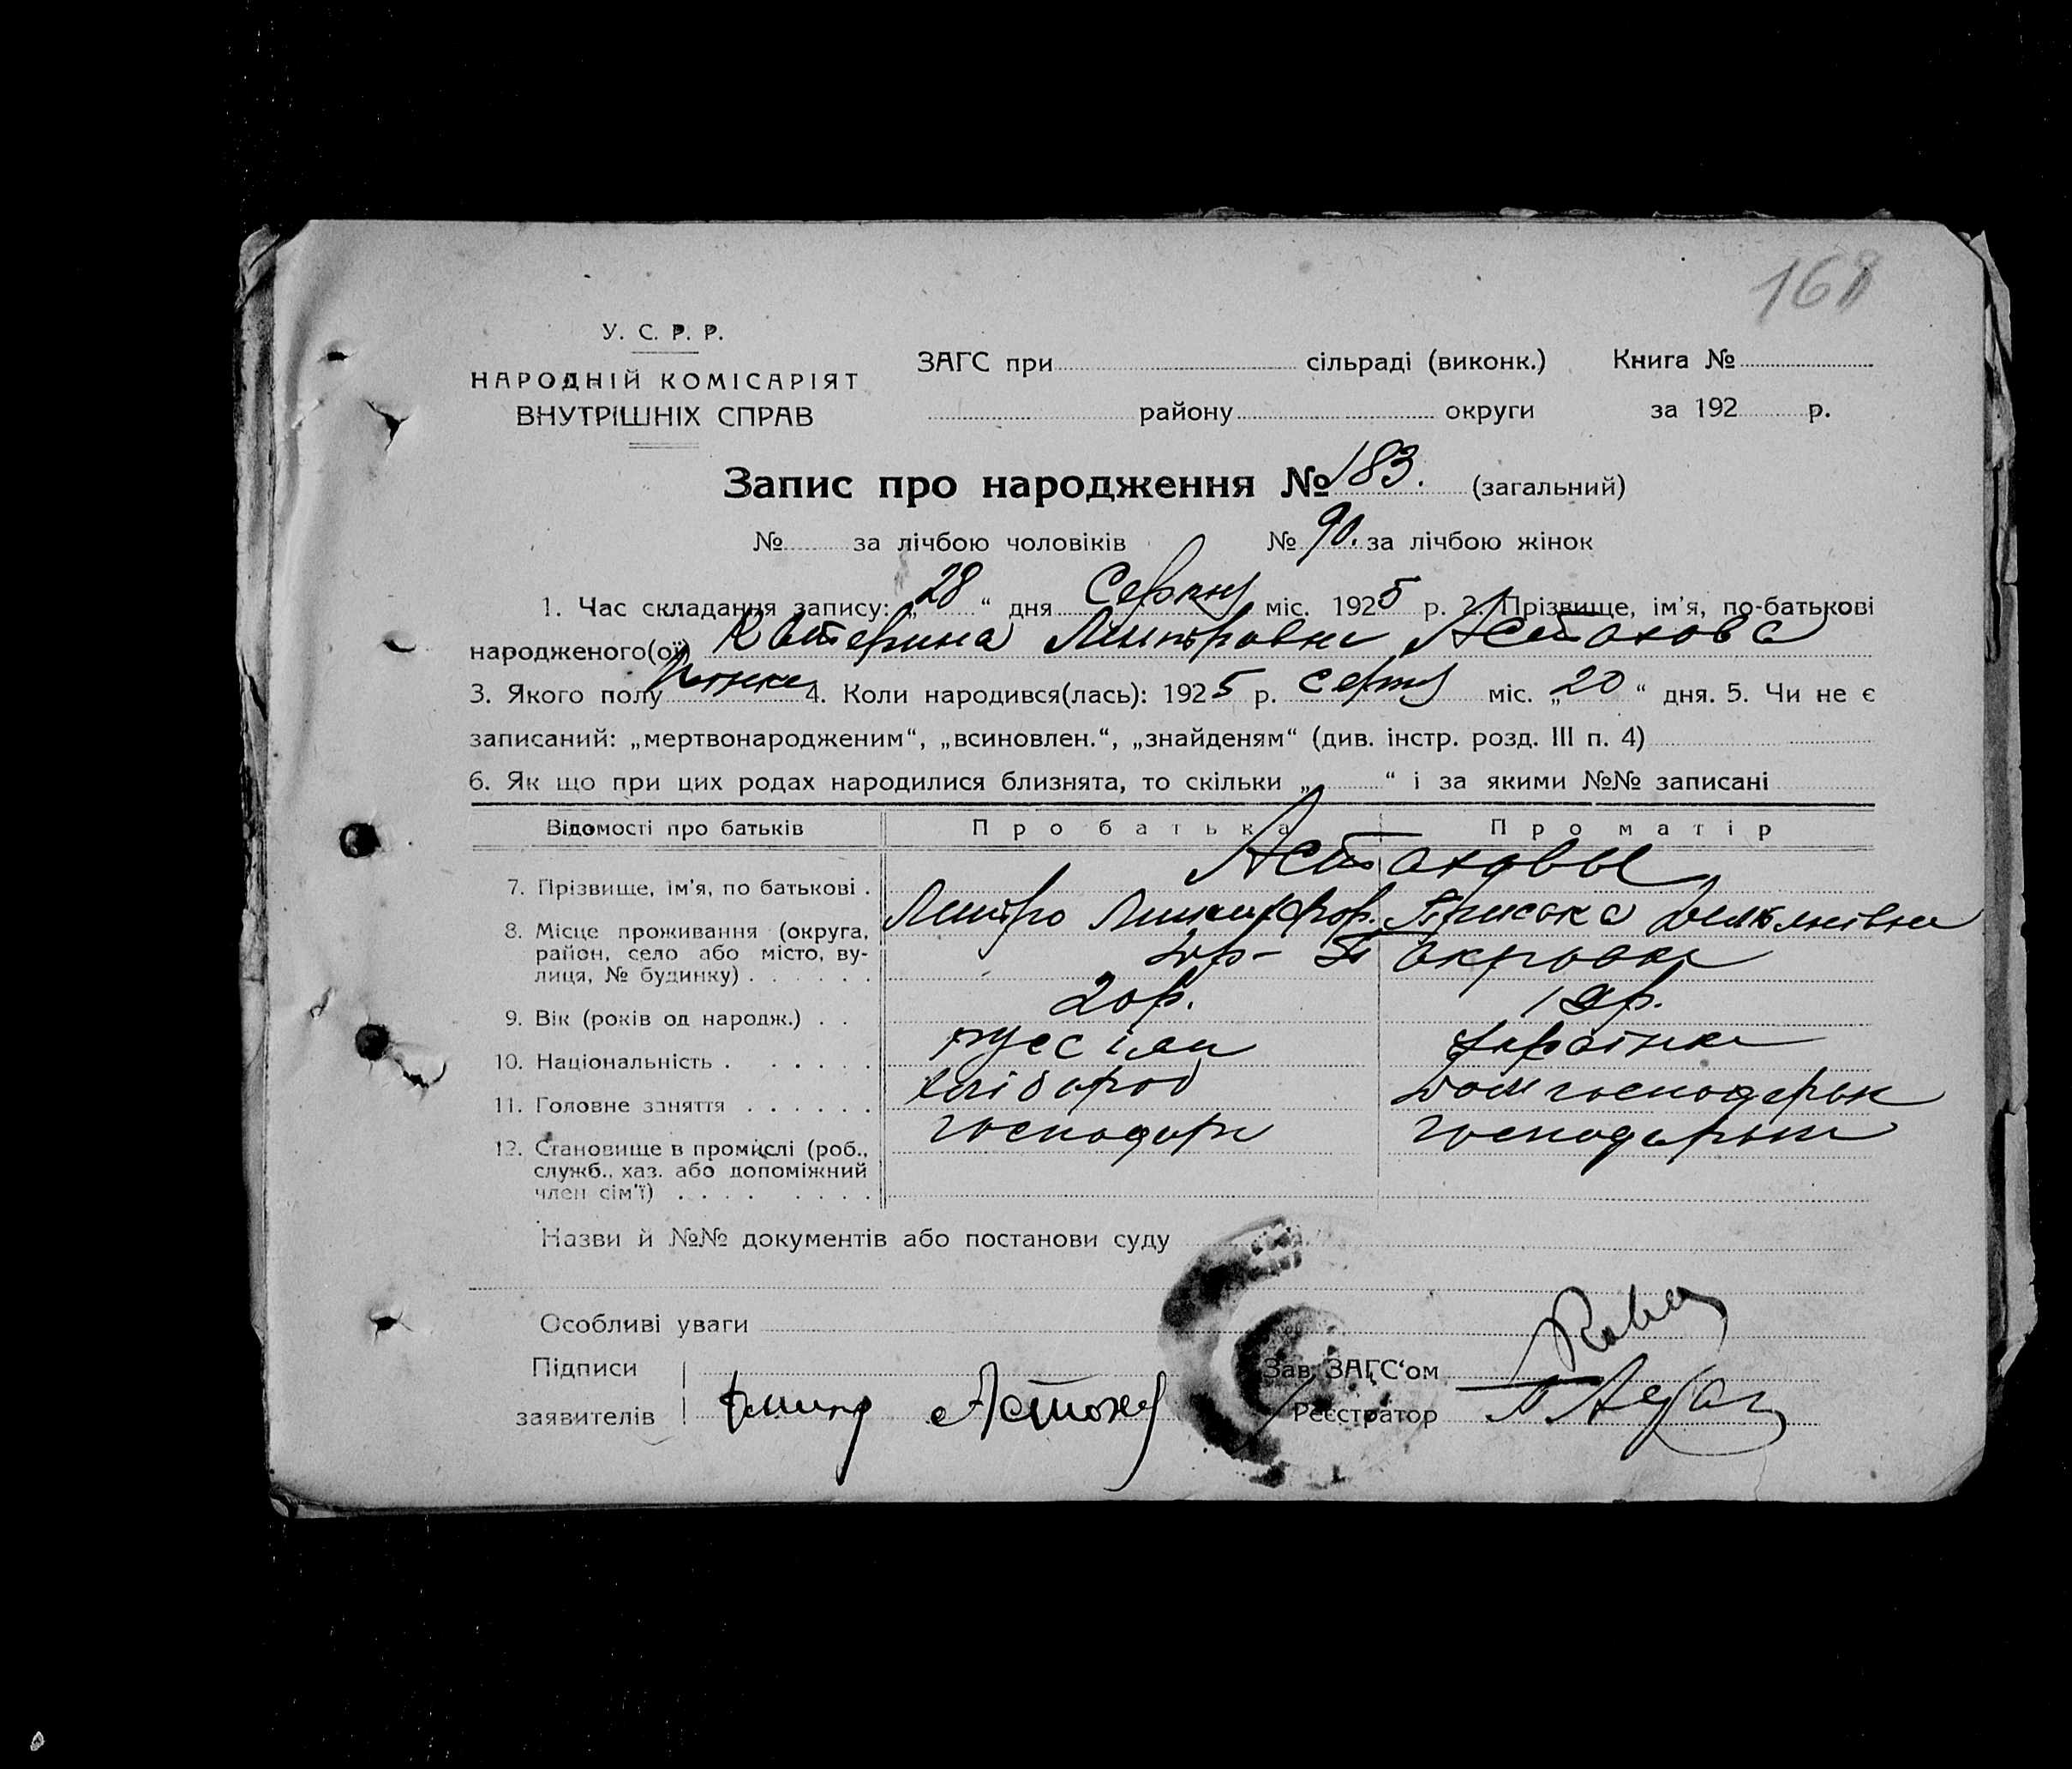 168
У. С. Р. Р.
НАРОДНІЙ КОМІСАРІЯТ
ВНУТРІШНІХ СПРАВ
ЗАГС при сільраді (виконк.) Книга №
району округи за 192 р.
Запис про народження № 183. (загальний)
№ за лічбою чоловіків № 90. за лічбою жінок
1. Час складання запису: „28“ дня Серпня міс. 1925 р. 2. Прізвище, ім'я, по-батькові
народженого(ої) Катерина Дмитровна Астахова
3. Якого полу жінка 4. Коли народився(лась): 1925 р. серпня міс. „20“ дня. 5. Чи не є
записаний: „мертвонародженим“, „всиновлен.“, „знайденям“ (див. інстр. розд. III п. 4)
6. Як що при цих родах народилися близнята, то скільки „ “ і за якими №№ записані
Відомості про батьків Про батька Про матір
Астаховы
7. Прізвище, ім'я, по батькові . Дмитро Никифор.
8. Місце проживання (округа, район, село або місто, вулиця, № будинку) . . . . . . Покровка
9. Вік (років од народж.) . . 20р. 19р.
10. Національність . . . . . . руссіян українка
11. Головне заняття . . . . . . хлібороб дом господарк
12. Становище в промислі (роб., служб., хаз. або допоміжний член сім'ї) . . . . . . . . господарь господарька
Назви й №№ документів або постанови суду
Особливі уваги
Підписи
заявителів Астахов
Зав. ЗАГС'ом
Реєстратор